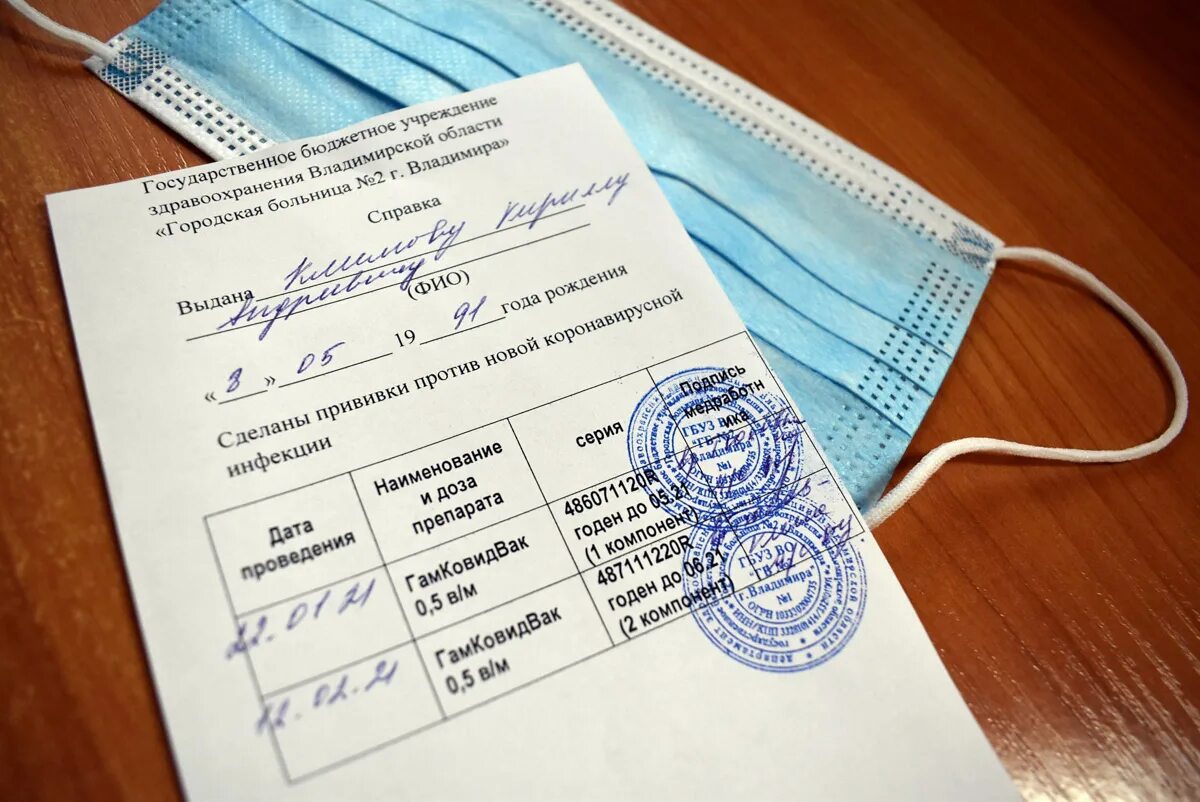 Государственное бюджетное учреждение
здравоохранения Владимирской области
«Городская больница №2 г. Владимира»
Справка
Выдана Климову Кириллу
Андреевичу
(ФИО)
«8» 05 1991 года рождения
Сделаны прививки против новой коронавирусной
инфекции
Дата проведения
Наименование и доза препарата
серия
Подпись медработника
22.01.21
ГамКовидВак
0,5 в/м
486071120R
годен до 05.21
(1 компонент)
12.02.21
ГамКовидВак
0,5 в/м
487111220R
годен до 06.21
(2 компонент)
ГБУЗ ВО
"ГБ №2
г. Владимира"
№1
ГБУЗ ВО
"ГБ №2
г. Владимира"
№1
ОГРН 1033302004735